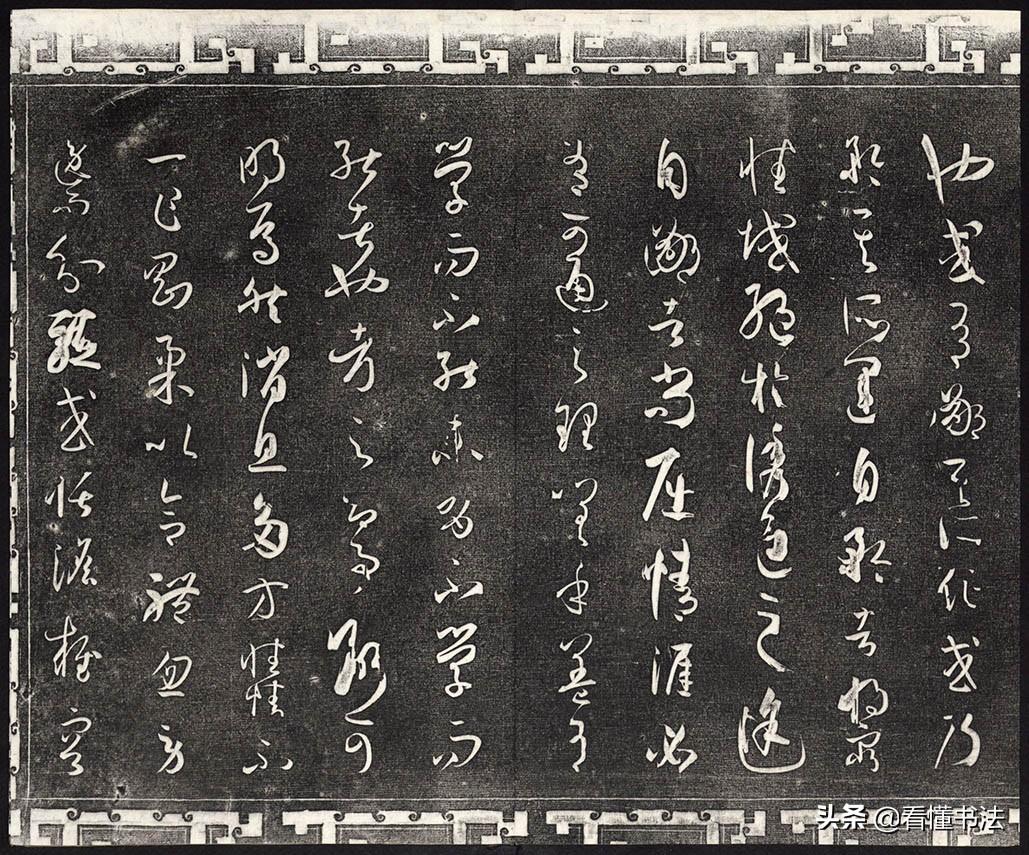 也或有鄙其所作或乃
矜其所運自矜者將窮
性域絕於誘進之途
自鄙者尚屈情涯必
有可通之理嗟乎蓋有
學而不能未有不學而
能者也考之即事斷可
明焉然消息多方性情不
一乍剛柔以合體忽勞
逸而分驅或恬憺雍容
头条 @看懂书法